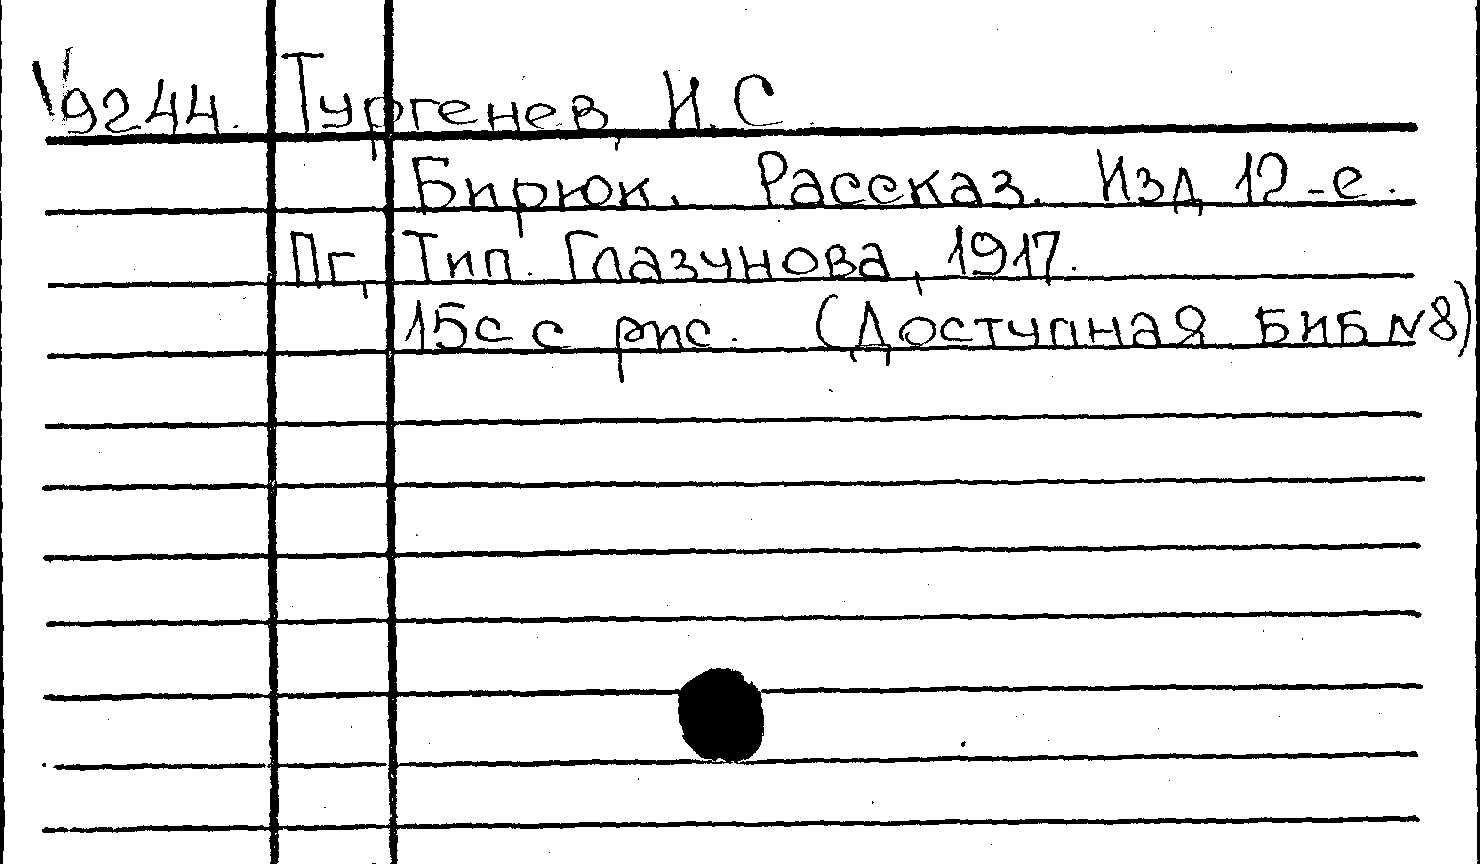 V9244. Тургенев, И.С.
Бирюк. Рассказ. Изд 12-е.
Пг, Тип. Глазунова, 1917.
15с с рис. (Доступная БИБ N8)